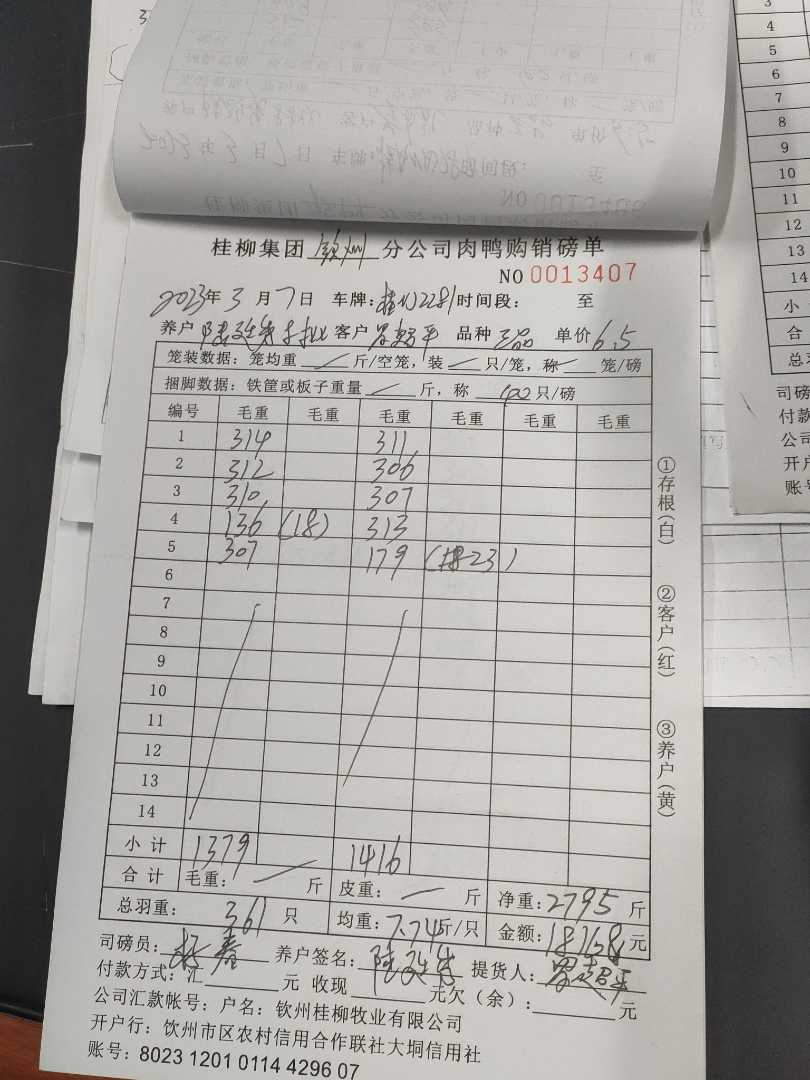 桂柳集团 钦州 分公司肉鸭购销磅单
NO 0013407
2023年3月7日 车牌: 时间段: 至
养户 客户 品种 单价6.5
笼装数据: 笼均重 斤/空笼, 装 只/笼, 称 笼/磅
捆脚数据: 铁筐或板子重量 斤, 称 只/磅
编号 毛重 毛重 毛重 毛重 毛重 毛重
1 314 311
2 312 306
3 310 307
4 136 (18) 313
5 307 179
6
7
8
9
10
11
12
13
14
小计 1379 1416
合计 毛重: 斤 皮重: 斤 净重: 2795 斤
总羽重: 361 只 均重: 7.74斤/只 金额: 18168元
司磅员: 杨春 养户签名: 提货人:
付款方式: 汇 元 收现 元欠(余): 元
公司汇款帐号: 户名: 钦州桂柳牧业有限公司
开户行: 饮州市区农村信用合作联社大垌信用社
账号: 8023 1201 0114 4296 07
①存根(白)
②客户(红)
③养户(黄)
3
4
5
6
7
8
9
10
11
12
13
14
小
合
总羽
司磅
付款
公司
开户
账号